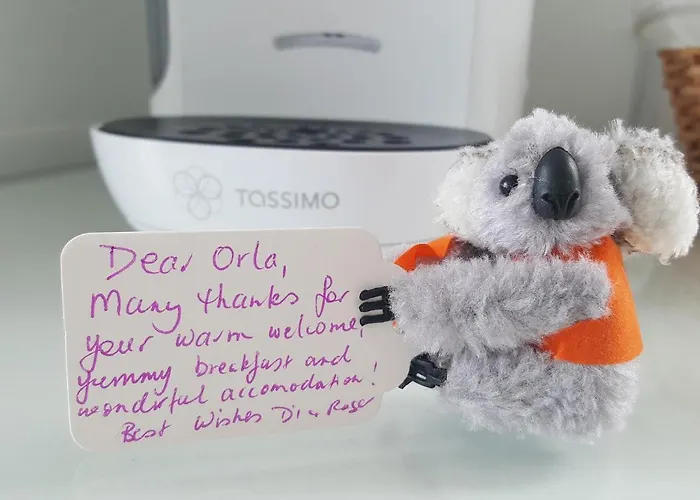 TASSIMO
Dear Orla,
Many thanks for
your warm welcome,
yummy breakfast and
wondirful accomodation!
Best wishes Di & Roger